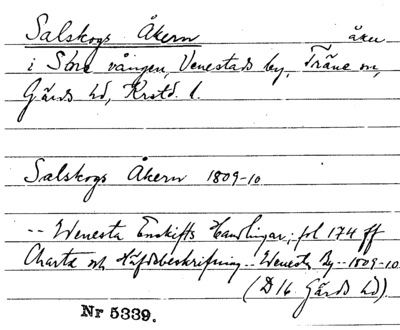 Salskogs Åkern åker
i Stora vången, Venestads by, Träne sn,
Gärds hd, Krstd. l.
Salskogs Åkern 1809-10
-- Wenesta Enskifts Handlingar; fol 174 ff
Charta och Häfdebeskrifning -- Wenesta By -- 1809-10
(D 16 Gärds hd).
Nr 5339.